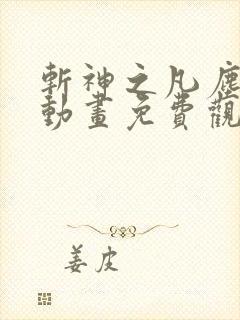 斬神之凡塵
動畫免費觀
姜皮